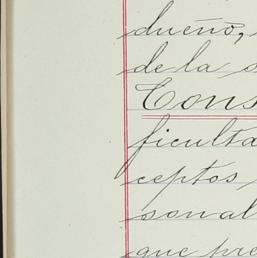 dueño,
de la s
Cons
ficulta
ceptos
sonal
que pre